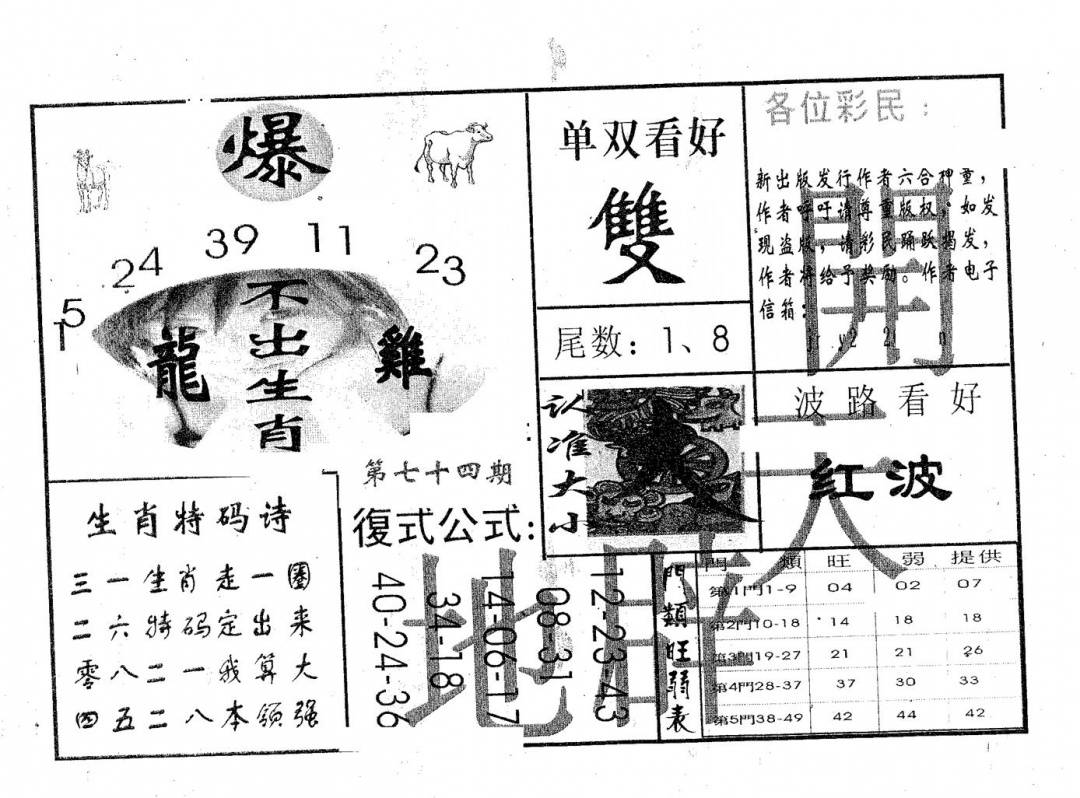 爆
15
24
39
11
23
不出生肖
龍
雞
单双看好
雙
尾数：1、8
各位彩民：
新出版发行作者六合神童，
作者呼吁请尊重版权，如发
现盗版，请彩民踊跃揭发，
作者将给予奖励。作者电子
信箱：
開
天
地
认准大小
波路看好
红波
第七十四期
復式公式：
40-24-36
34-18
14-06-17
08-31
12-23-43
生肖特码诗
三一生肖走一圈
二六特码定出来
零八二一我算大
四五二八本领强
門類旺弱表
門類 旺 弱 提供
第1門1-9 04 02 07
第2門10-18 14 18 18
第3門19-27 21 21 26
第4門28-37 37 30 33
第5門38-49 42 44 42